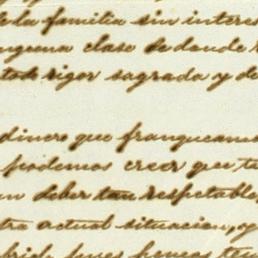 la familia sin interes
inguna clase de donde
todo rigor sagrada y de
dinero que franqueamo
podemos creer que te
un deber tan respetable,
tra actual situacion, y
pues pocos